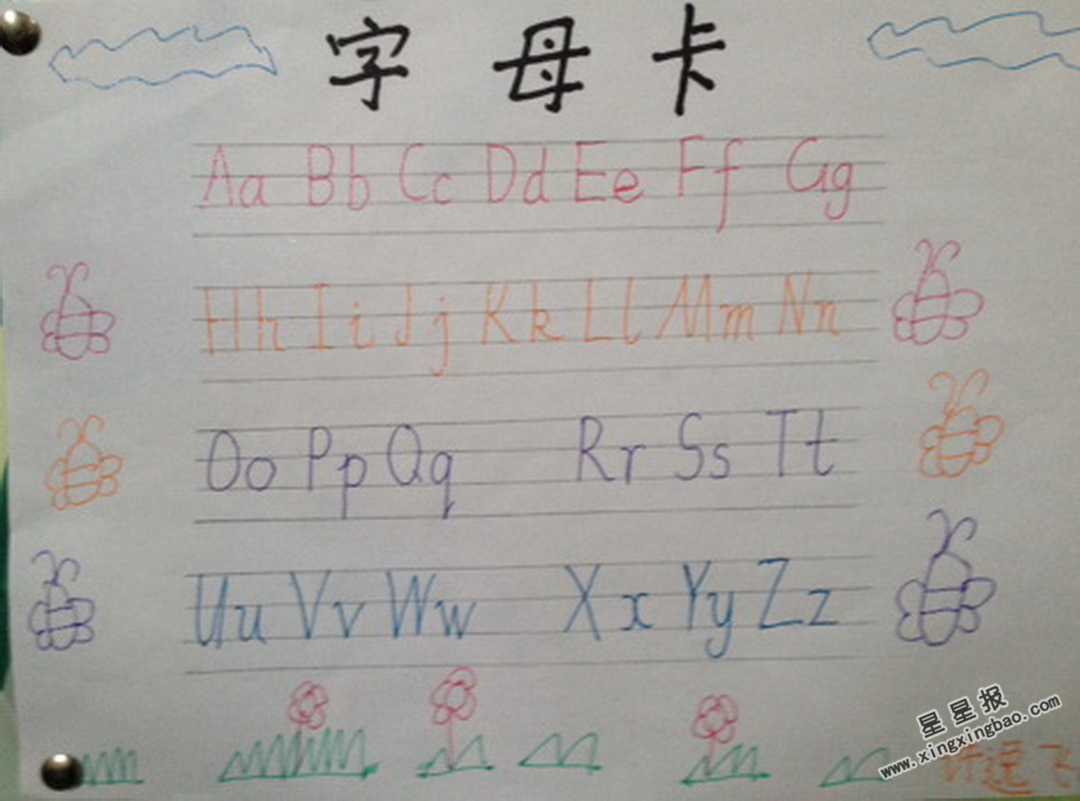 字 母 卡
Aa Bb Cc Dd Ee Ff Gg
Hh Ii Jj Kk Ll Mm Nn
Oo Pp Qq Rr Ss Tt
Uu Vv Ww Xx Yy Zz
星星报
www.xingxingbao.com